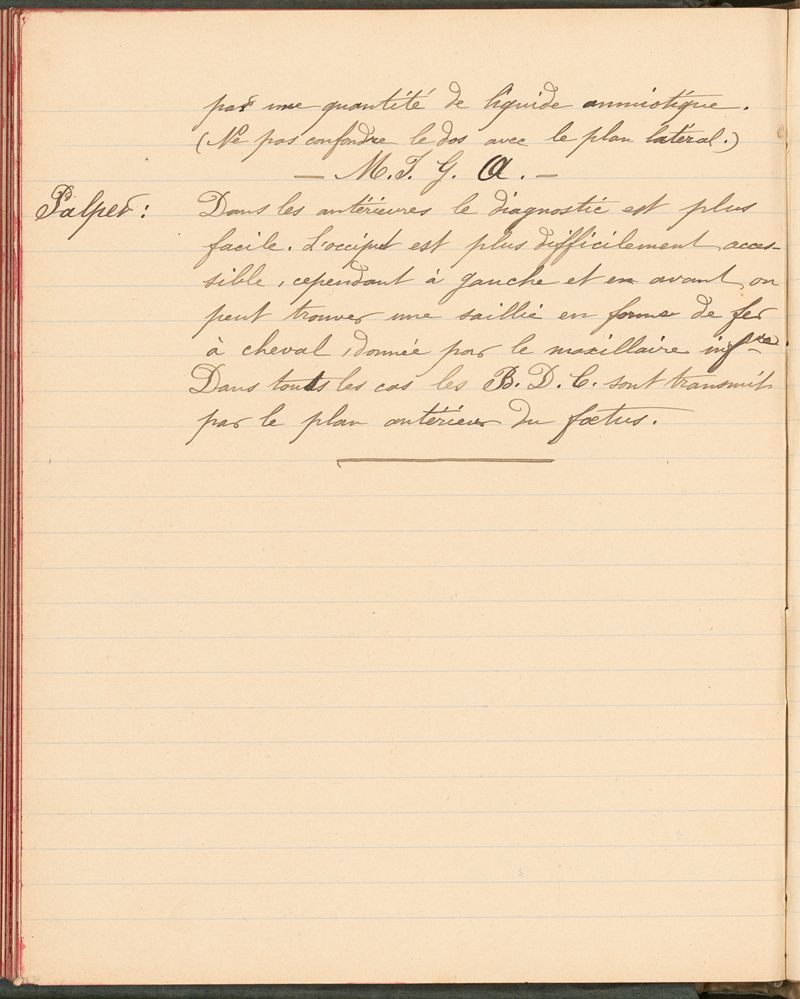 par une quantité de liquide amniotique.
(Ne pas confondre le dos avec le plan latéral.)
— M. I. G. A. —
Palper : Dans les antérieures le diagnostic est plus
facile. L'occiput est plus difficilement acces-
sible, cependant à gauche et en avant on
peut trouver une saillie en forme de fer
à cheval, donnée par le maxillaire infre
Dans touts les cas les B. D. C. sont transmit
par le plan antérieur du fœtus.